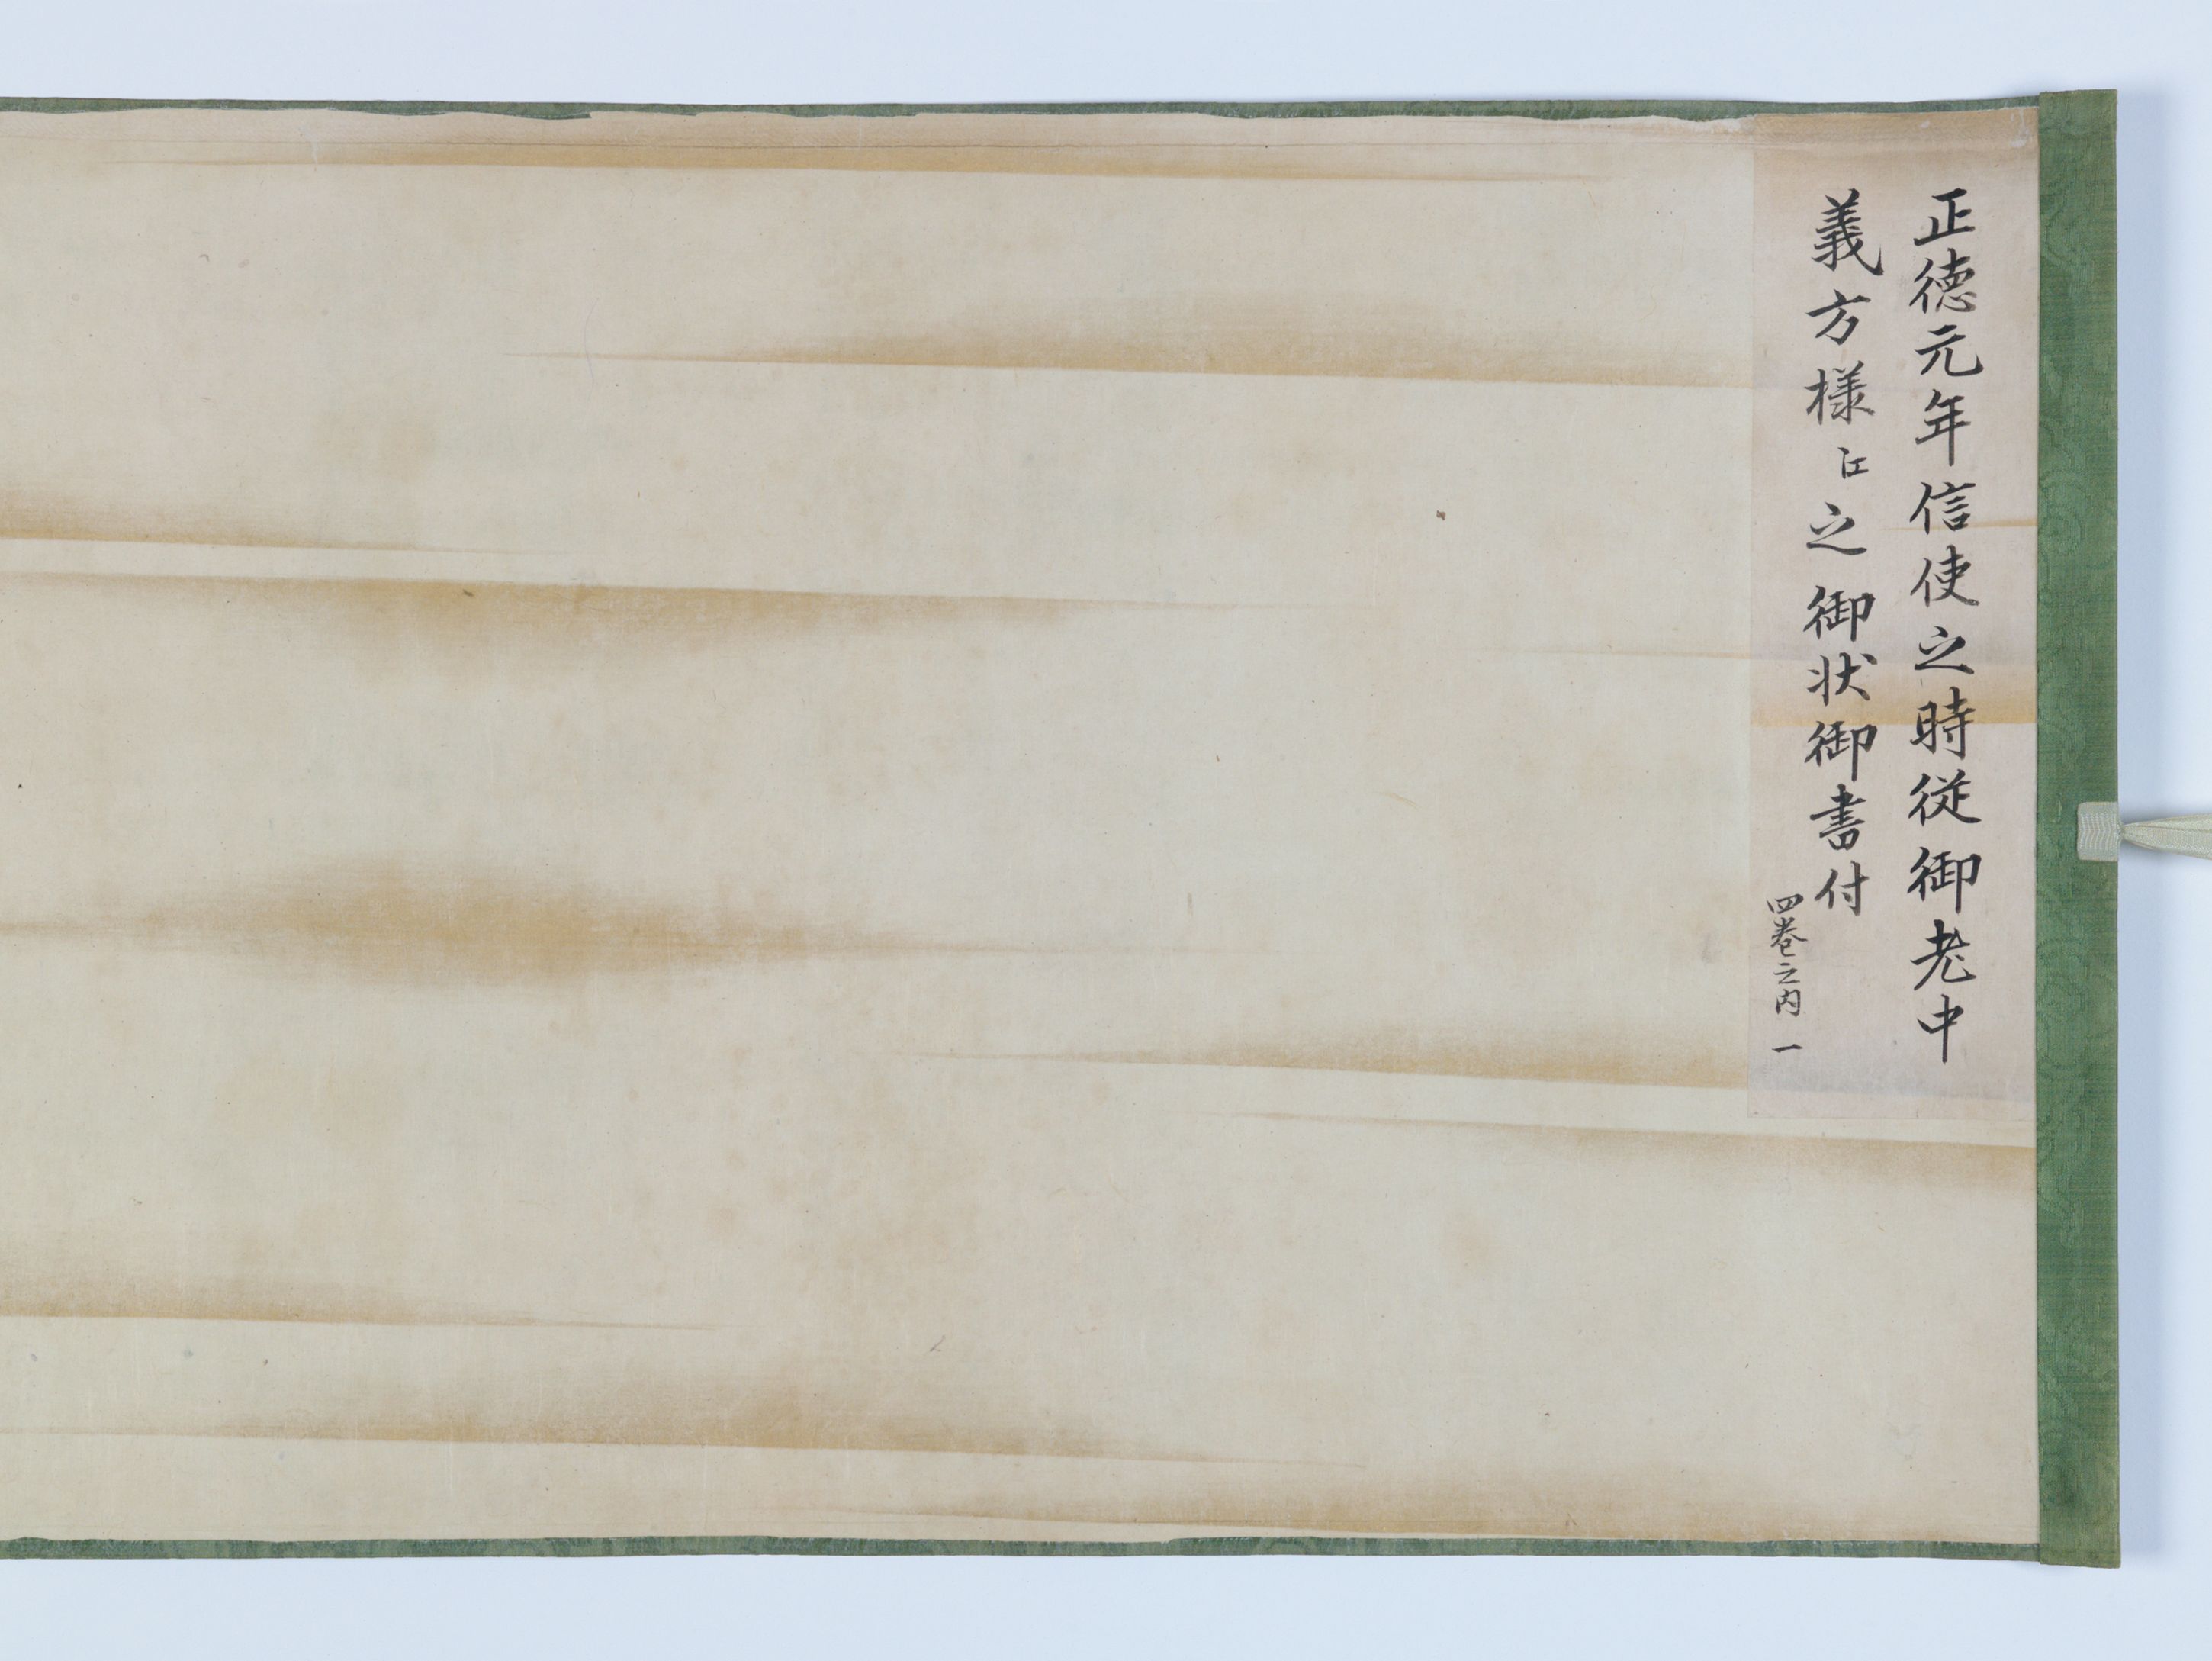 正徳元年信使之時従御老中
義方様江之御状御書付
四巻之内 一